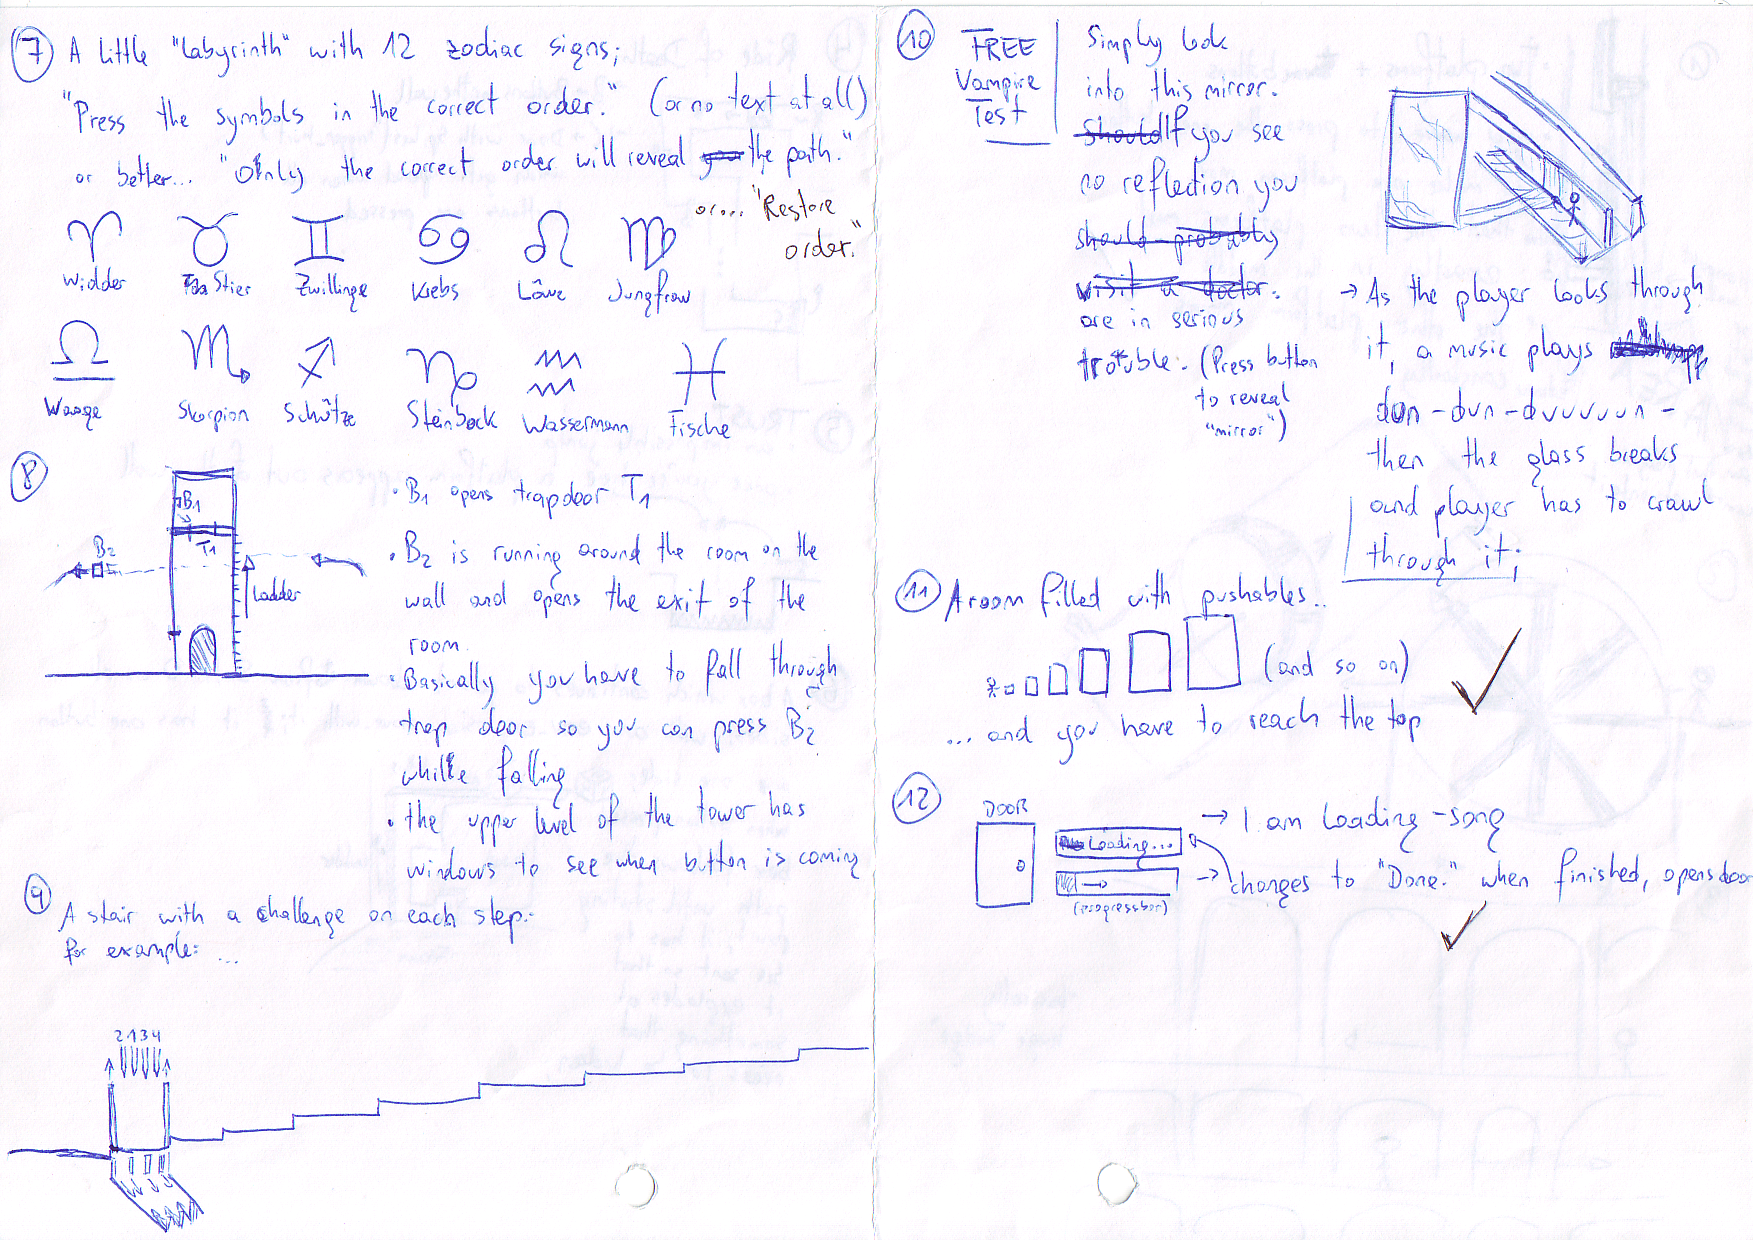 7 A little "Labyrinth" with 12 zodiac signs;
"Press the symbols in the correct order." (or no text at all)
or better... "Only the correct order will reveal the path."
or... "Restore
order."
Widder Stier Zwillinge Krebs Löwe Jungfrau
Waage Skorpion Schütze Steinbock Wassermann Fische
8
B1
T1
B2
Ladder
• B1 opens trapdoor T1
• B2 is running around the room on the
wall and opens the exit of the
room.
• Basically you have to fall through
trap door so you can press B2
while falling
• the upper level of the tower has
windows to see when button is coming
9 A stair with a challenge on each step.
for example: ...
2 1 3 4
10 FREE
Vampire
Test
Simply look
into this mirror.
Should If you see
no reflection you
should probably
visit a doctor.
are in serious
trouble. (Press button
to reveal
"mirror")
→ As the player looks through
it, a music plays
dun - dun - duuuuun -
then the glass breaks
and player has to crawl
through it;
11 A room filled with pushables..
(and so on)
... and you have to reach the top
12 DOOR
Loading...
(progressbar)
→ I am Loading - song
→ changes to "Done." when finished, opens door